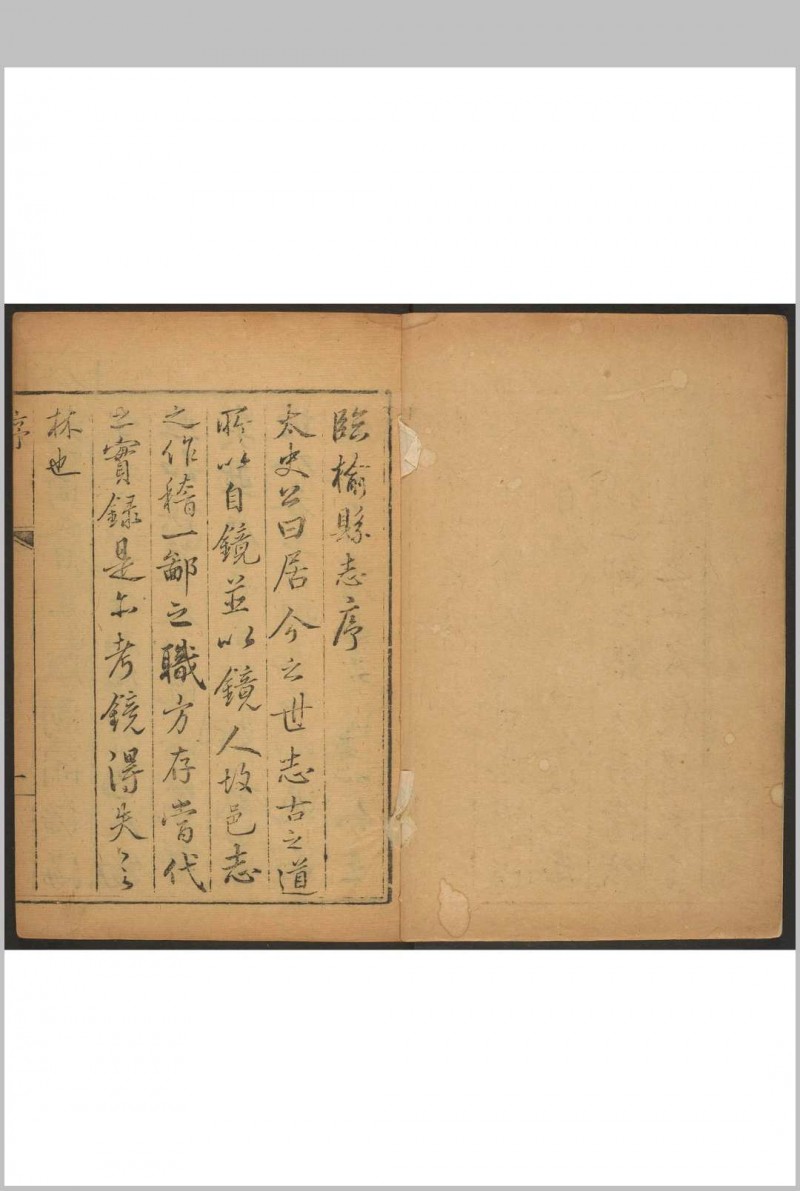 臨榆縣志序
太史公曰居今之世志古之道
所以自鏡並以鏡人故邑志
之作稽一鄙之職方存當代
之實錄是亦考鏡得失之
林也
序
一